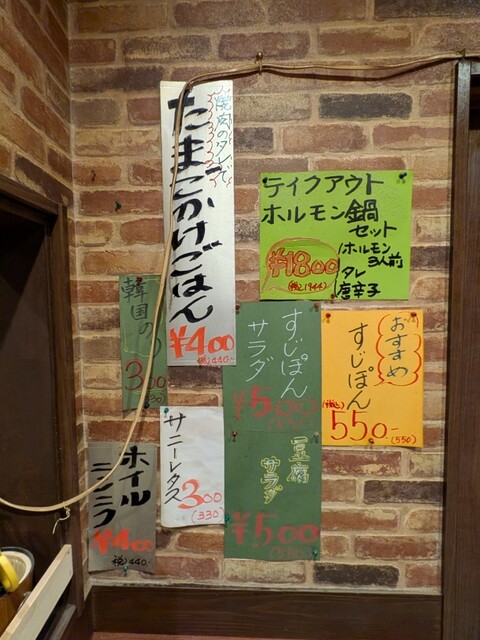 焼肉のタレで
たまごかけごはん
¥400
税込440-
テイクアウト
ホルモン鍋
セット
ホルモン
3人前
タレ
唐辛子
¥1800
(税込1944)
韓国の
300
すじぽん
サラダ
¥500
おすすめ
すじぽん
(税込)
550-
(550)
サニーレタス
300
(330)
豆腐
サラダ
¥500
ホイル
ニンニク
¥400
税込440-